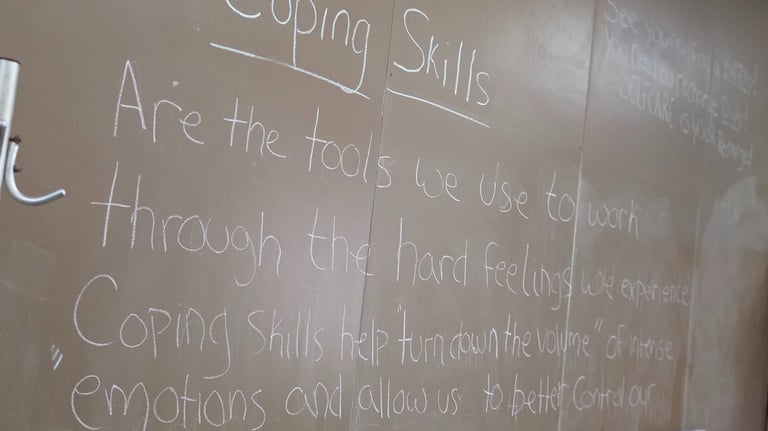 Coping Skills
Are the tools we use to work
through the hard feelings we experience
Coping Skills help "turn down the volume" of intense
emotions and allow us to better control our
See Yourself as a
You need to recharge Daily!
SELFCARE is your Recharge!